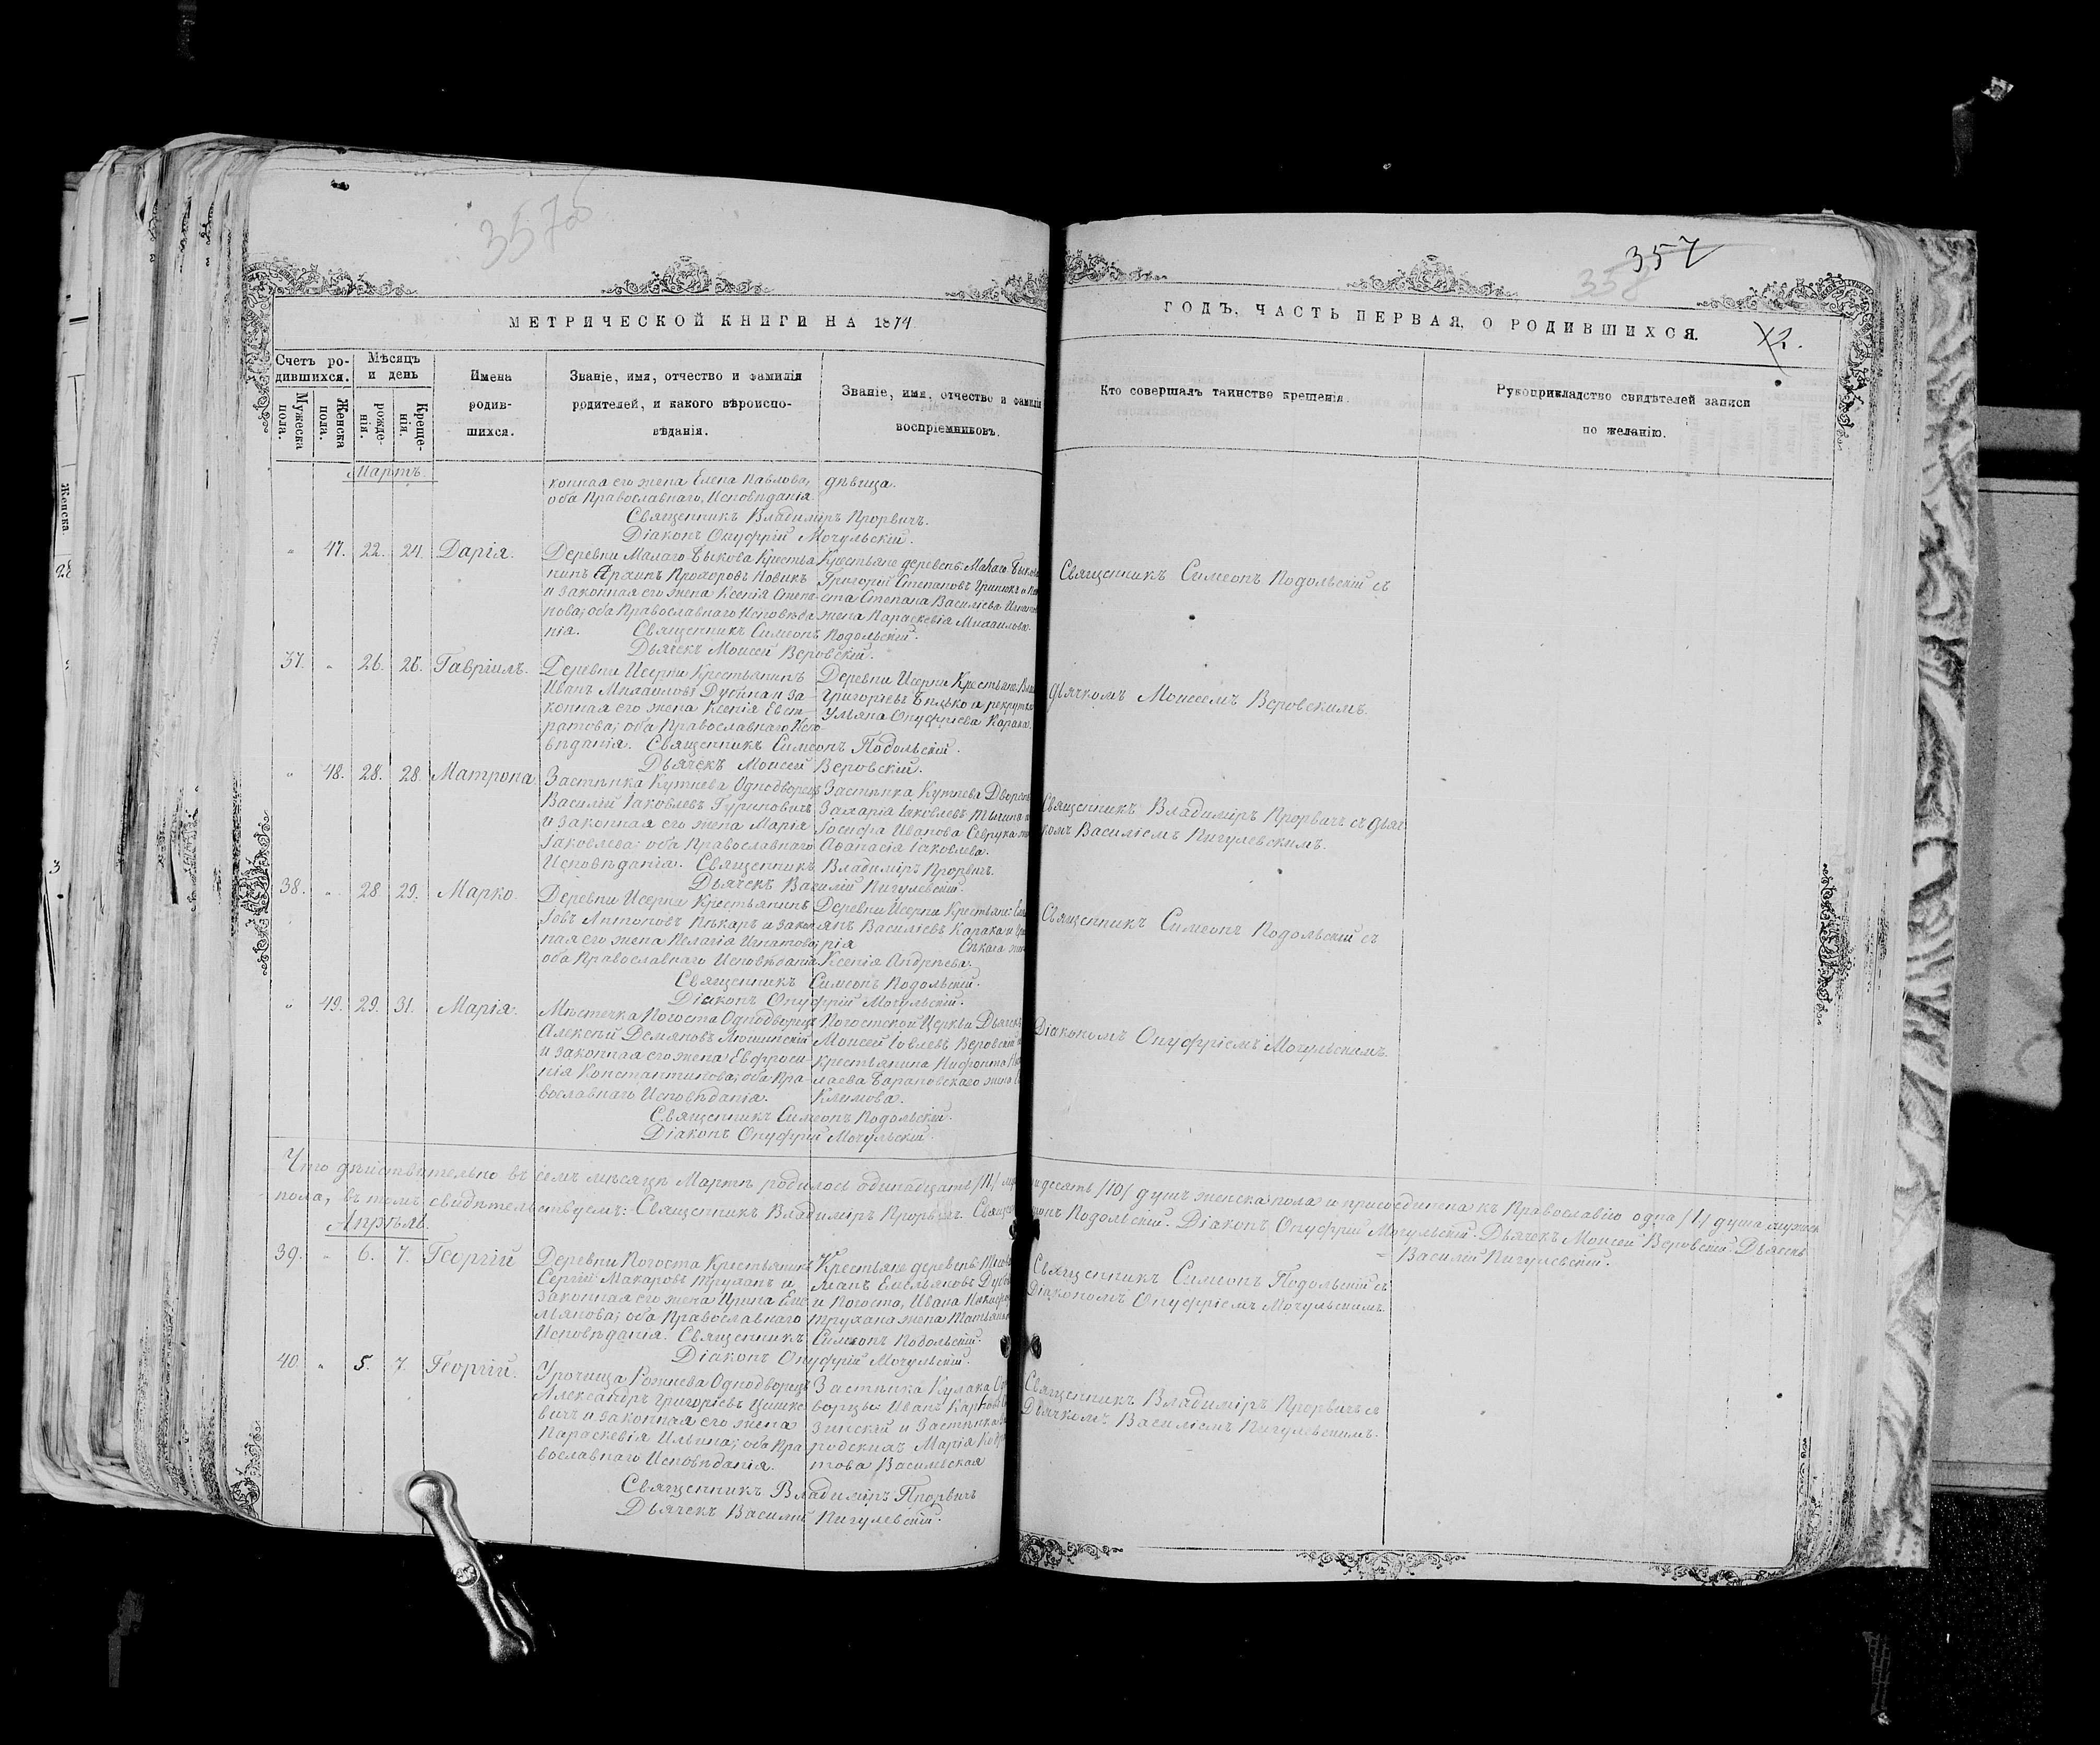 357об
357
358
МЕТРИЧЕСКОЙ КНИГИ НА 1874
ГОДЪ, ЧАСТЬ ПЕРВАЯ, О РОДИВШИХСЯ.
Счетъ ро-
дившихся.
Мужеска
пола.
Женска
пола.
Мѣсяцъ
и день
рожде-
нія.
Креще-
нія.
Имена
родив-
шихся.
Званіе, имя, отчество и фамилія
родителей, и какого вѣроиспо-
вѣданія.
Званіе, имя, отчество и фамилія
воспріемниковъ.
Кто совершалъ таинство крещенія.
Рукоприкладство свидѣтелей записи
по желанію.
Мартъ.
конная его жена Елена Павлова,
оба Православнаго, Исповѣданія
дѣвица.
Священникъ Владиміръ Прорвичъ.
Діаконъ Онуфрій Мочульскій.
" 47. 22. 24. Дарія.
Деревни Малаго Быкова Крестья
нинъ Архипъ Прохоровъ Новикъ
и законная его жена Ксенія Степ-
нова; оба Православнаго Исповѣда
нія.
Крестьяне деревень: Малаго Быкова
Григорій Степановъ Гринюкъ и
ста Степана Василіева
жена Параскевія Михаилова.
Священникъ Симеонъ Подольскій.
Дьячекъ Моисей Веровскій.
Священникъ Симеонъ Подольскій съ
37. " 26. 26. Гавріилъ.
Деревни Исерни Крестьянинъ
Иванъ Михаиловъ Дубина и за-
конная его жена Ксенія Евст-
ратова; оба Православнаго Испо
вѣданія.
Деревни Исерни Крестьяне:
Григорьевъ Бицько и рекрутка
Ульяна Онуфріева Карака.
Священникъ Симеонъ Подольскій.
Дьячекъ Моисей Веровскій.
Дьячкомъ Моисеемъ Веровскимъ.
" 48. 28. 28. Матрона
Застѣнка Кутнева Однодворецъ
Василій Іаковлевъ Гуриновичъ
и законная его жена Марія
Іаковлева; оба Православнаго
Исповѣданія.
Застѣнка Кутнева Дворянъ
Захарія Іаковлевъ
Іосифа Иванова Севрука
Афанасія Іаковлева.
Священникъ Владиміръ Прорвичъ.
Дьячекъ Василій Пигулевскій.
Священникъ Владиміръ Прорвичъ съ Дьяч-
комъ Василіемъ Пигулевскимъ.
38. " 28 29. Марко.
Деревни Исерни Крестьянинъ
Іовъ Антоновъ Пѣкаръ и закон
ная его жена Пелагія Игнатова;
оба Православнаго Исповѣданія
Деревни Исерни Крестьяне:
янъ Василіевъ Карака и
рія Сѣкача жена
Ксенія Андреева.
Священникъ Симеонъ Подольскій.
Діаконъ Онуфрій Мочульскій.
Священникъ Симеонъ Подольскій съ
" 49. 29. 31. Марія.
Мѣстечка Погоста Однодворецъ
Алексѣй Демяновъ Люшинскій
и законная его жена Евфроси-
нія Константинова; оба Пра-
вославнаго Исповѣданія.
Погостской Церкви Дьячекъ
Моисей Іовлевъ Веровскій
Крестьянина Нифонта
лаева Барановскаго жена
Климова.
Священникъ Симеонъ Подольскій.
Діаконъ Онуфрій Мочульскій.
Діакономъ Онуфріемъ Мочульскимъ.
Что дѣйствительно въ семъ мѣсяцѣ Мартѣ родилось одинадцать /11/ десять /10/ душъ женска пола и присоединена къ Православію одна /1/ душа мужск
пола, въ томъ свидѣтельствуемъ: Священникъ Владиміръ Прорвичъ. Подольскій. Діаконъ Онуфрій Мочульскій. Дьячекъ Моисей Веровскій. Дьячекъ
= Василій Пигулевскій.
Апрѣль.
39. " 6. 7. Георгій
Деревни Погоста Крестьянинъ
Сергій Макаровъ Труханъ и
законная его жена Ирина Еме
льянова; оба Православнаго
Исповѣданія.
Крестьяне деревень:
Емельяновъ
и Погоста, Ивана
Трухана жена Татьяна
Священникъ Симеонъ Подольскій.
Діаконъ Онуфрій Мочульскій.
Священникъ Симеонъ Подольскій съ
Діакономъ Онуфріемъ Мочульскимъ.
40. " 5. 7. Георгій.
Урочища Рожнева Однодворецъ
Александръ Григоріевъ Цишке
вичъ и законная его жена
Параскевія Ильина; оба Пра
вославнаго Исповѣданія.
Застѣнка Кулака
ворцы: Иванъ Карповъ
зинскій и Застѣнка
родскихъ Марія
това Васильская
Священникъ Владиміръ Прорвичъ
Дьячекъ Василій Пигулевскій.
Священникъ Владиміръ Прорвичъ съ
Дьячкомъ Василіемъ Пигулевскимъ.